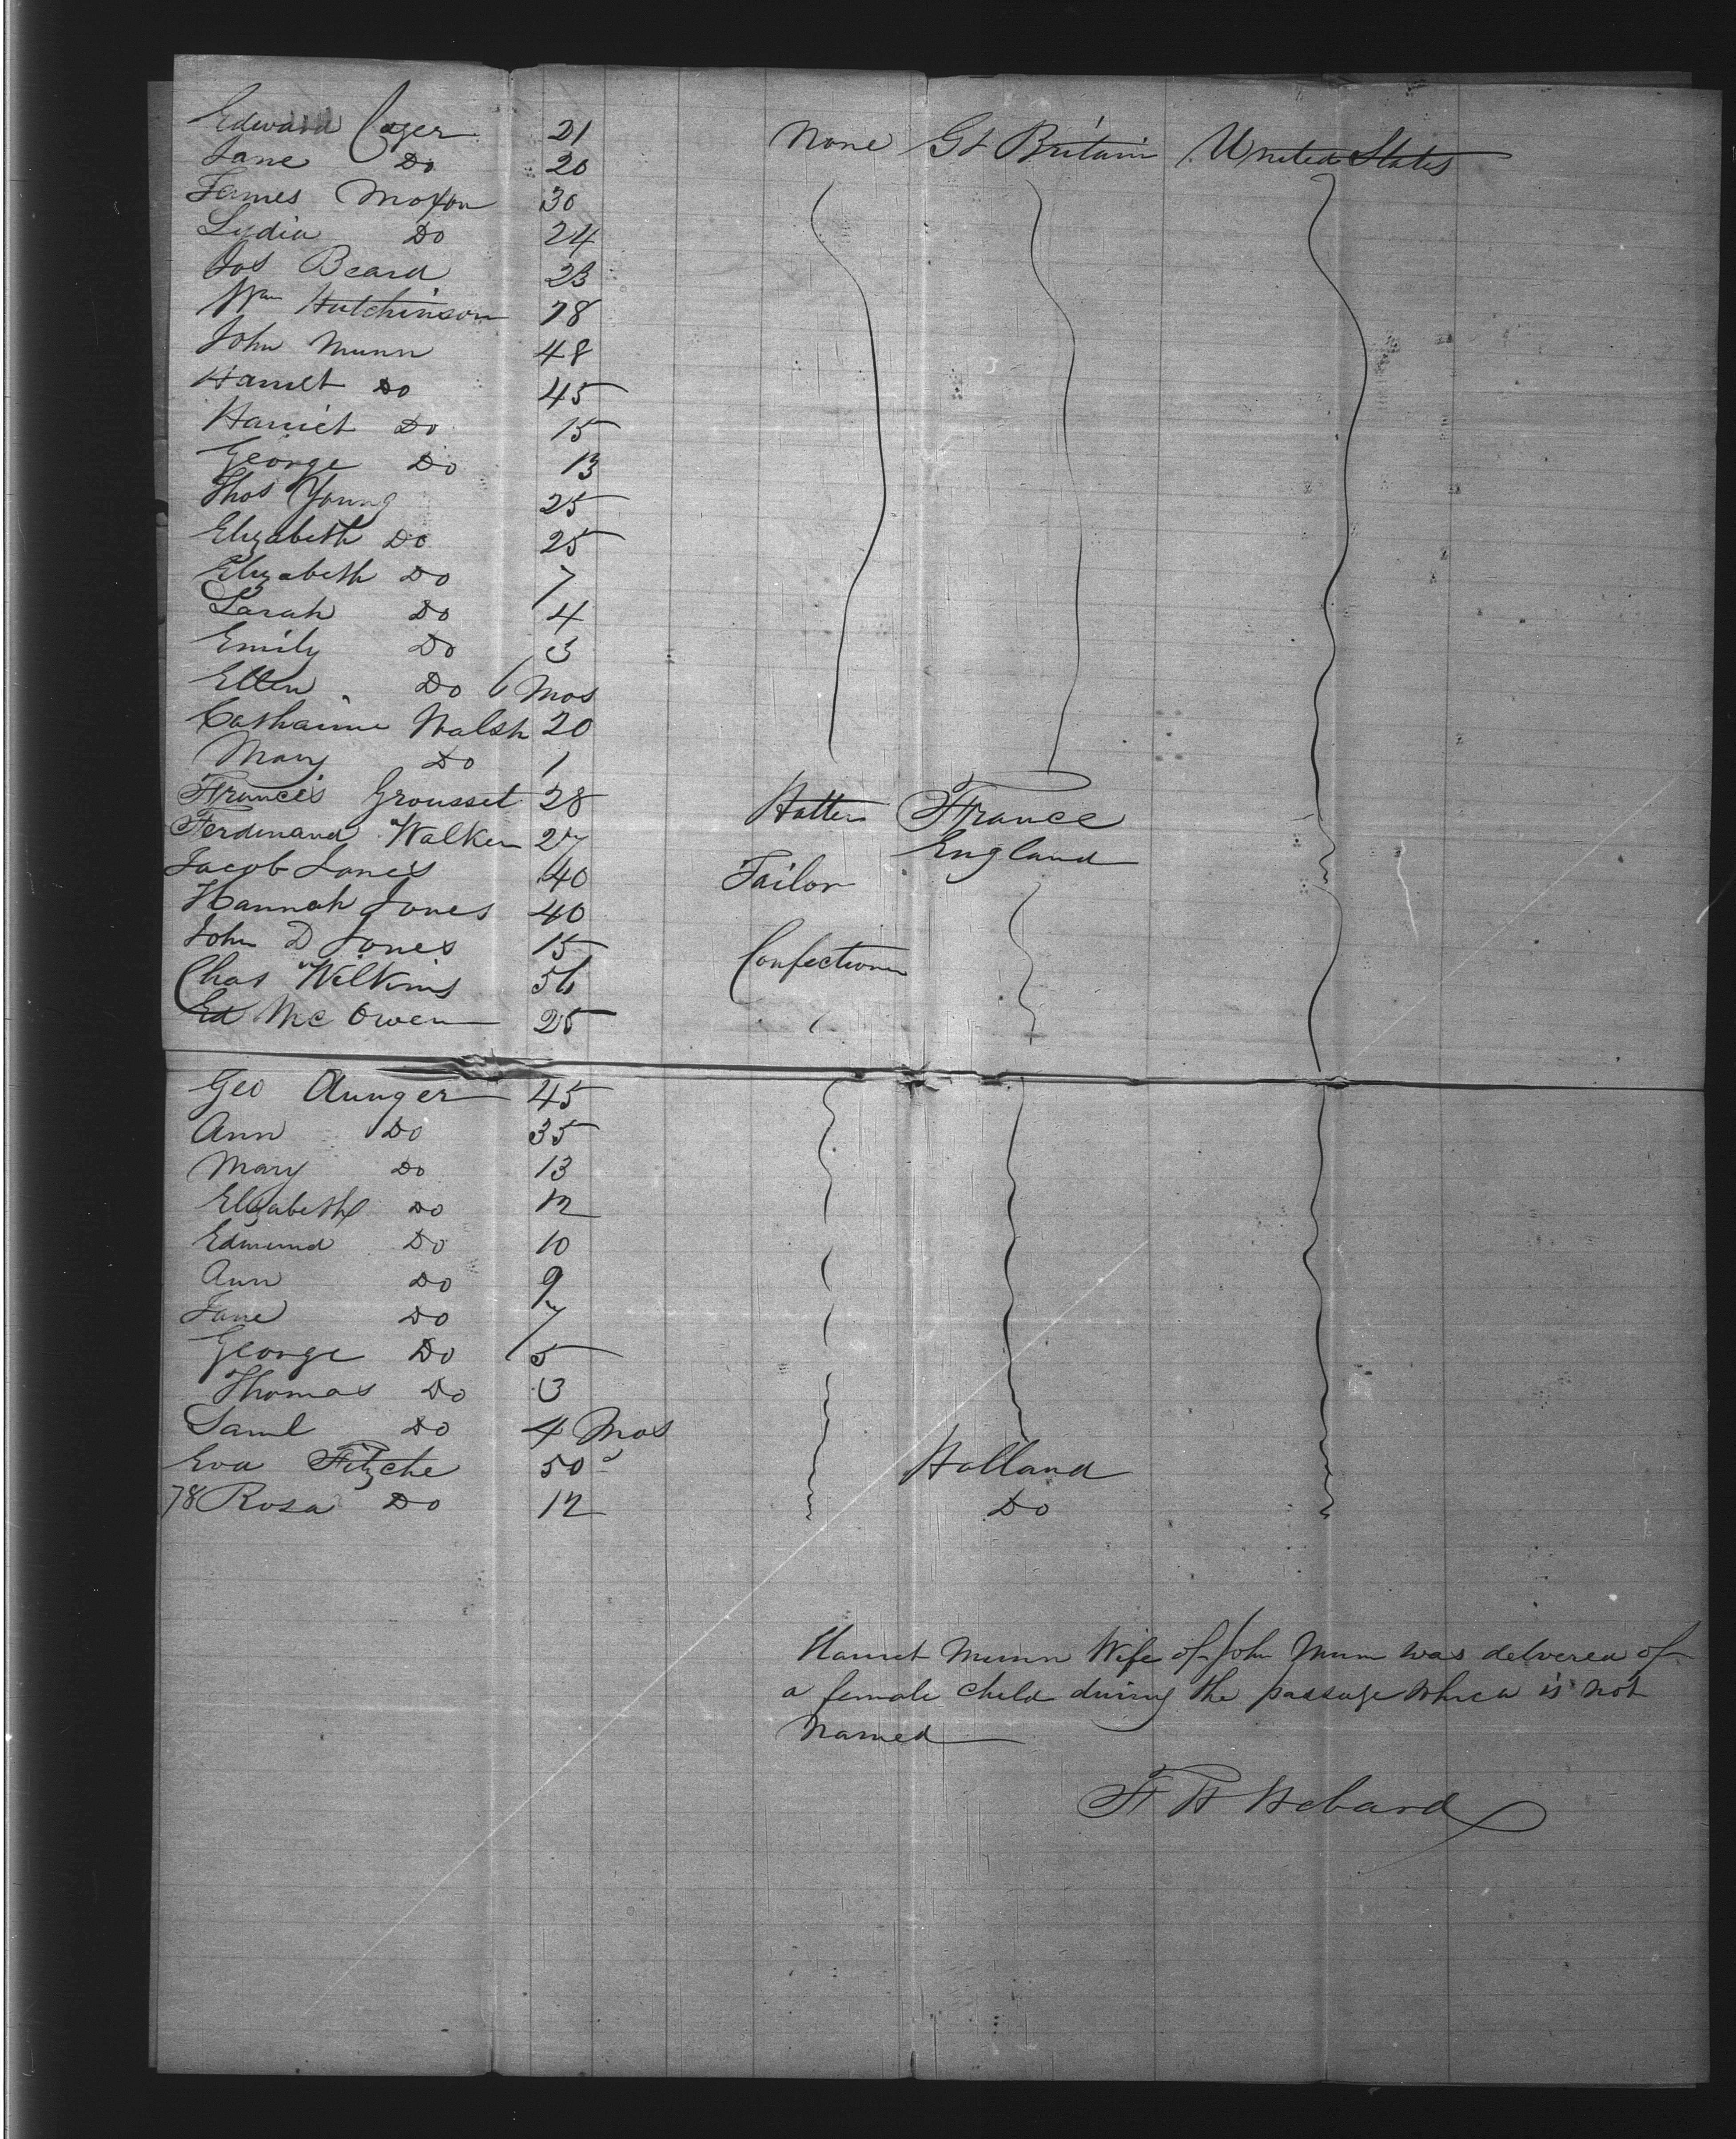 Edward Cager 21 None Gt Britain United States
Jane Do 20
James Moxon 30
Lydia Do 24
Jos Beard 23
Wm Hutchinson 78
John Munn 48
Harriet Do 45
Harriet Do 15
George Do 13
Thos Young 25
Elizabeth Do 25
Elizabeth Do 7
Sarah Do 4
Emily Do 3
Ellen Do 6 Mos
Catharine Walsh 20
Mary Do 1
Francis Grousset 28 Hatter France
Ferdinand Walker 27 England
Jacob Jones 40 Tailor
Hannah Jones 40
John D Jones 15
Chas Wilkins 56 Confectioner
Ed McOwen 25
Geo Aunger 45
Ann Do 35
Mary Do 13
Elizabeth Do 12
Edmund Do 10
Ann Do 9
Jane Do 7
George Do 5
Thomas Do 3
Saml Do 4 Mos
Eva Fitzche 50 Holland
78 Rosa Do 12 Do
Harriet Munn Wife of John Munn was delivered of
a female child during the passage which is not
named
F H Hebard